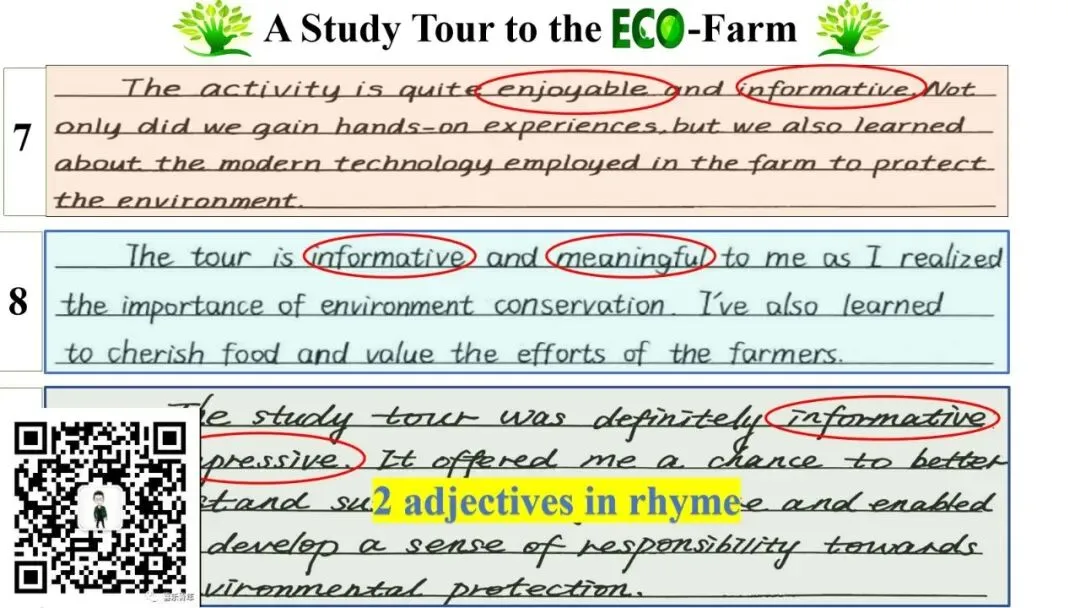 A Study Tour to the ECO-Farm
7
The activity is quite enjoyable and informative. Not
only did we gain hands-on experiences, but we also learned
about the modern technology employed in the farm to protect
the environment.
8
The tour is informative and meaningful to me as I realized
the importance of environment conservation. I've also learned
to cherish food and value the efforts of the farmers.
study tour was definitely informative
It offered me a chance to better
2 adjectives in rhyme
and enabled
develop a sense of responsibility towards
protection.